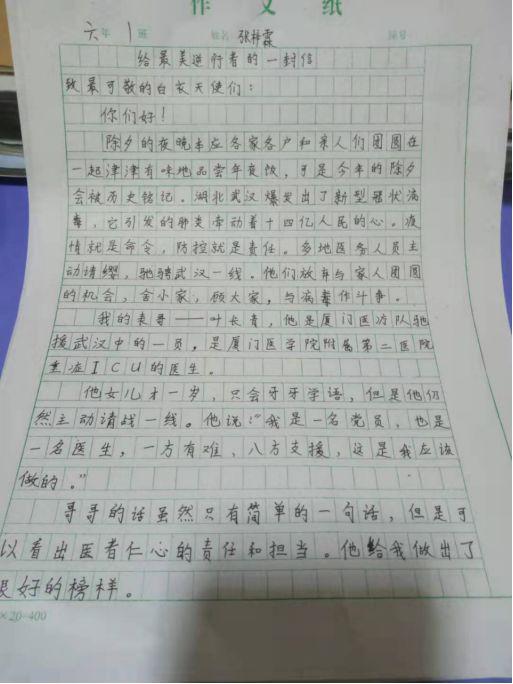 作文纸
六年1班 姓名 张梓霖 编号
给最美逆行者的一封信
致最可敬的白衣天使们：
你们好！
除夕的夜晚本应各家各户和亲人们团圆在
一起津津有味地品尝年夜饭，可是今年的除夕
会被历史铭记。湖北武汉爆发出了新型冠状病
毒，它引发的肺炎牵动着十四亿人民的心。疫
情就是命令，防控就是责任。多地医务人员主
动请缨，驰骋武汉一线。他们放弃与家人团圆
的机会，舍小家，顾大家，与病毒作斗争。
我的表哥——叶长青，他是厦门医疗队驰
援武汉中的一员，是厦门医学院附属第二医院
重症ICU的医生。
他女儿才一岁，只会牙牙学语，但是他仍
然主动请战一线。他说：“我是一名党员，也是
一名医生，一方有难，八方支援，这是我应该
做的。”
哥哥的话虽然只有简单的一句话，但是可
以看出医者仁心的责任和担当。他给我做出了
很好的榜样。
×20=400